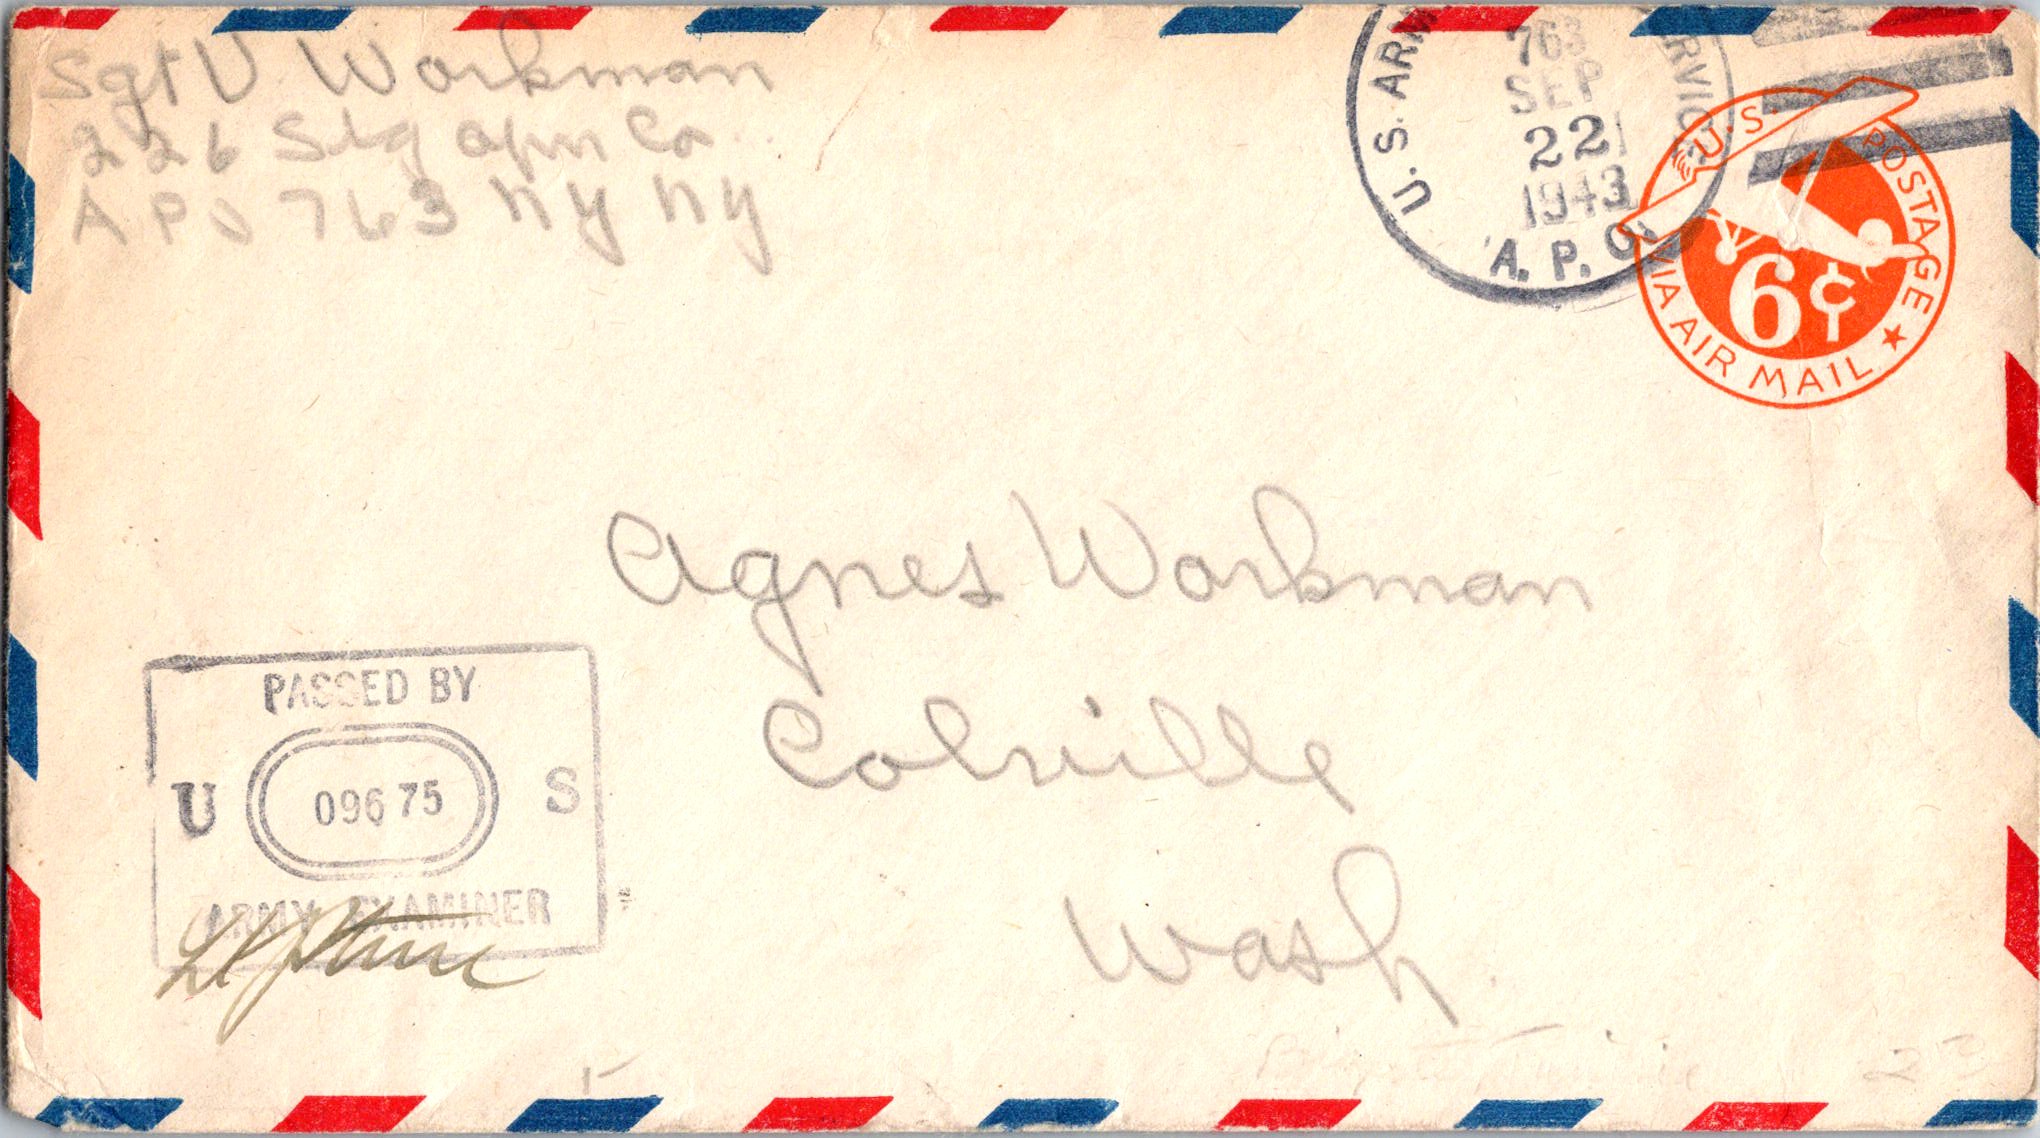 Sgt V Workman
226 Sig Opn Co
A P O 763 N Y N Y
U.S. ARM RVICE
763
SEP
22
1943
A. P. O.
U.S. POSTAGE
6¢
VIA AIR MAIL
Agnes Workman
Colville
Wash.
PASSED BY
U 09675 S
ARMY EXAMINER